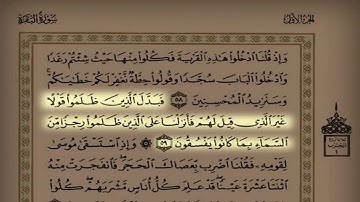 سورة البقرة
الجزء الأول
وَإِذْ قُلْنَا ادْخُلُوا هَٰذِهِ الْقَرْيَةَ فَكُلُوا مِنْهَا حَيْثُ شِئْتُمْ رَغَدًا
وَادْخُلُوا الْبَابَ سُجَّدًا وَقُولُوا حِطَّةٌ نَّغْفِرْ لَكُمْ خَطَايَاكُمْ ۚ
وَسَنَزِيدُ الْمُحْسِنِينَ ٥٨ فَبَدَّلَ الَّذِينَ ظَلَمُوا قَوْلًا
غَيْرَ الَّذِي قِيلَ لَهُمْ فَأَنزَلْنَا عَلَى الَّذِينَ ظَلَمُوا رِجْزًا مِّنَ
السَّمَاءِ بِمَا كَانُوا يَفْسُقُونَ ٥٩ ۞ وَإِذِ اسْتَسْقَىٰ مُوسَىٰ
لِقَوْمِهِ فَقُلْنَا اضْرِب بِّعَصَاكَ الْحَجَرَ ۖ فَانفَجَرَتْ مِنْهُ
اثْنَتَا عَشْرَةَ عَيْنًا ۖ قَدْ عَلِمَ كُلُّ أُنَاسٍ مَّشْرَبَهُمْ ۖ كُلُوا